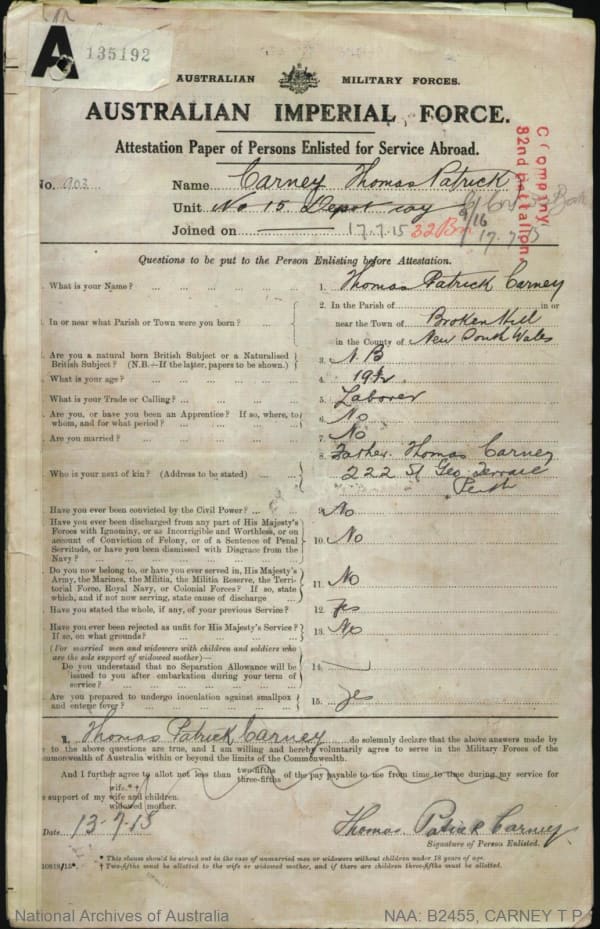 A 135192
AUSTRALIAN MILITARY FORCES.
AUSTRALIAN IMPERIAL FORCE.
Attestation Paper of Persons Enlisted for Service Abroad.
C Company,
32nd Battalion
No. 903 Name Carney Thomas Patrick
Unit No 15 Depot Coy
Joined on 17.7.15 32 Bn 9/16 17.7.15
Questions to be put to the Person Enlisting before Attestation.
What is your Name? ... 1. Thomas Patrick Carney
In or near what Parish or Town were you born? ... 2. In the Parish of ... in or
near the Town of Broken Hill
in the County of New South Wales
Are you a natural born British Subject or a Naturalised
British Subject? (N.B.—If the latter, papers to be shown.) 3. N B
What is your age? ... 4. 19½
What is your Trade or Calling? ... 5. Laborer
Are you, or have you been an Apprentice? If so, where, to
whom, and for what period? ... 6. No
Are you married? ... 7. No
Who is your next of kin? (Address to be stated) ... 8. Father. Thomas Carney
222 St Geo Terrace
Perth
Have you ever been convicted by the Civil Power? ... 9. No
Have you ever been discharged from any part of His Majesty's
Forces with Ignominy, or as Incorrigible and Worthless, or on
account of Conviction of Felony, or of a Sentence of Penal
Servitude, or have you been dismissed with Disgrace from the
Navy? ... 10. No
Do you now belong to, or have you ever served in, His Majesty's
Army, the Marines, the Militia, the Militia Reserve, the Terri-
torial Force, Royal Navy, or Colonial Forces? If so, state
which, and if not now serving, state cause of discharge ... 11. No
Have you stated the whole, if any, of your previous Service? 12. Yes
Have you ever been rejected as unfit for His Majesty's Service?
If so, on what grounds? ... 13. No
(For married men and widowers with children and soldiers who
are the sole support of widowed mother)—
Do you understand that no Separation Allowance will be
issued to you after embarkation during your term of
service? ... 14.
Are you prepared to undergo inoculation against smallpox
and enteric fever? ... 15. Yes
I, Thomas Patrick Carney do solemnly declare that the above answers made by
to the above questions are true, and I am willing and hereby voluntarily agree to serve in the Military Forces of the
mmonwealth of Australia within or beyond the limits of the Commonwealth.
And I further agree to allot not less than two-fifths three-fifths of the pay payable to me from time to time during my service for
support of my wife*† wife and children. widowed mother.
Date 13-7-15 Thomas Patrick Carney
Signature of Person Enlisted.
* This clause should be struck out in the case of unmarried men or widowers without children under 18 years of age.
† Two-fifths must be allotted to the wife or widowed mother, and if there are children three-fifths must be allotted.
National Archives of Australia NAA: B2455, CARNEY T P